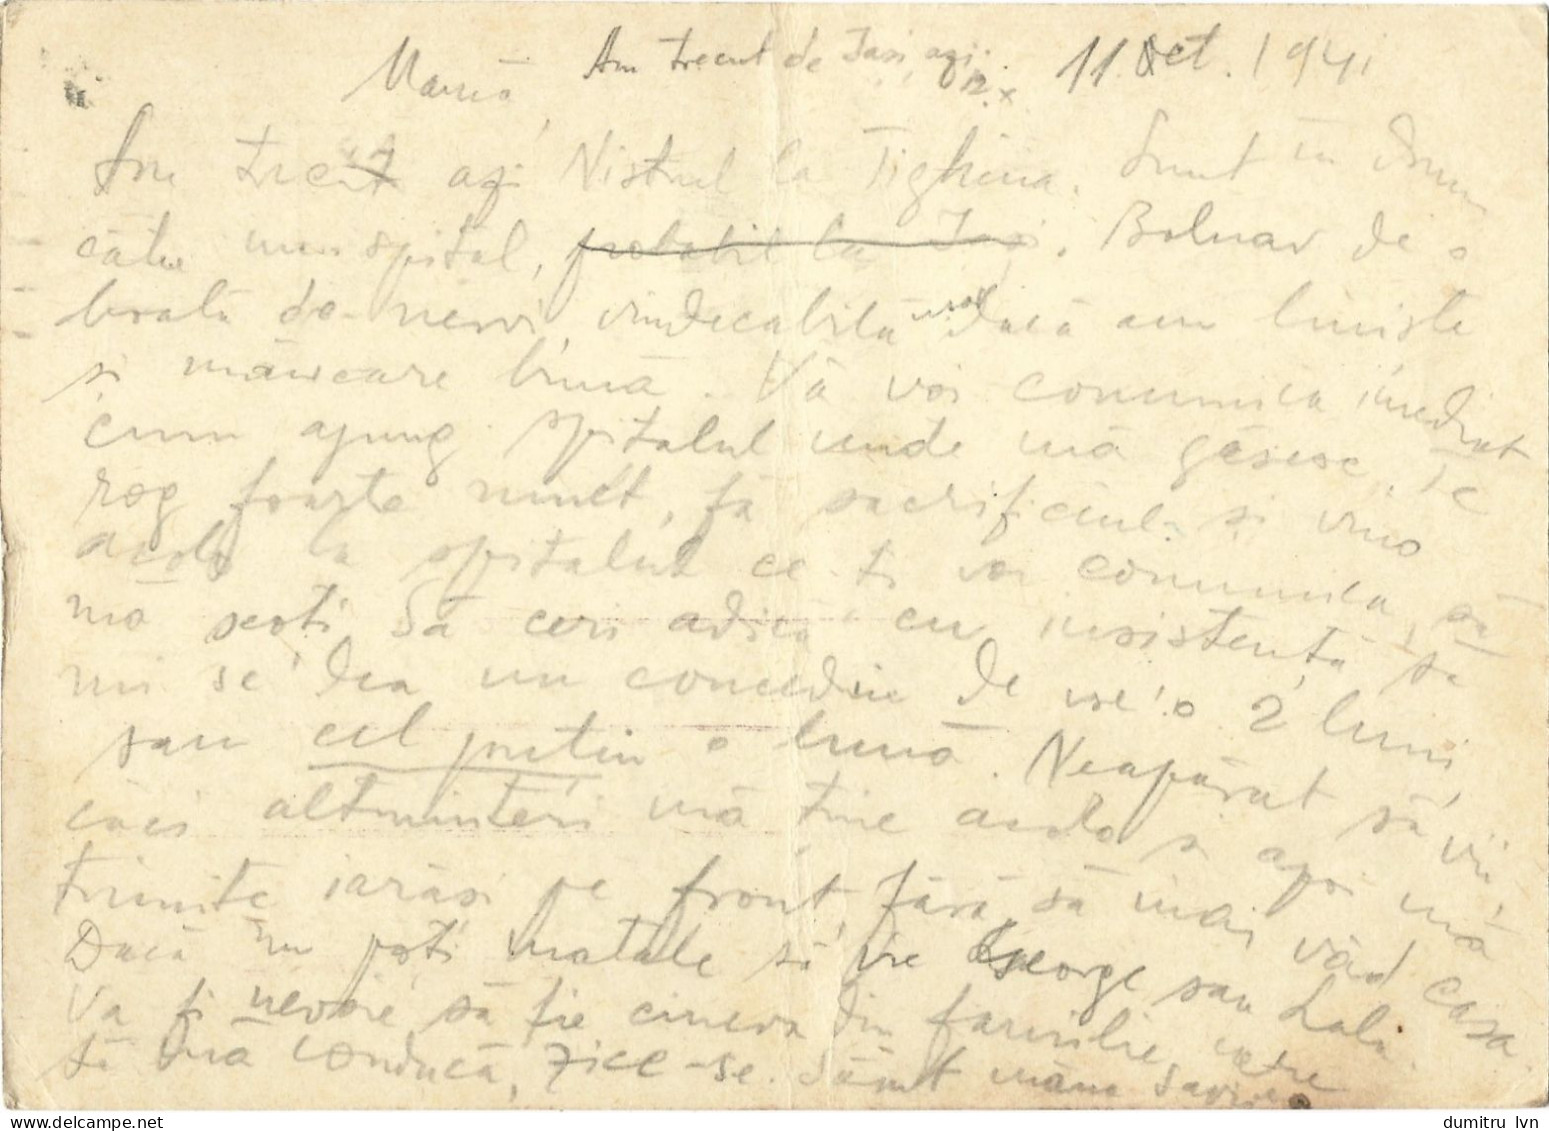 Am trecut de Iasi, azi 12.X
11 Oct. 1941
Mamă,
Am trecut azi Nistrul la Tighina. Sunt în drum
către un spital, probabil la Iași. Bolnav de o
boală de nervi, vindecabilă dacă am liniște
și mâncare bună. Vă voi comunica imediat
cum ajung spitalul unde mă găsesc. Te
rog foarte mult, fă sacrificiul și vino
acolo la spitalul ce-ți voi comunica, să
mă scoți. Să ceri adică cu insistență să
mi se dea un concediu de vre'o 2 luni,
sau cel puțin o lună. Neapărat să vii,
căci altminteri mă ține acolo și apoi mă
trimite iarăși pe front, fără să mai văd casa.
Dacă nu poți matale să vie George sau Lală.
Va fi nevoie să fie cineva din familie, către
să mă conducă, zice-se. Sărut mâna